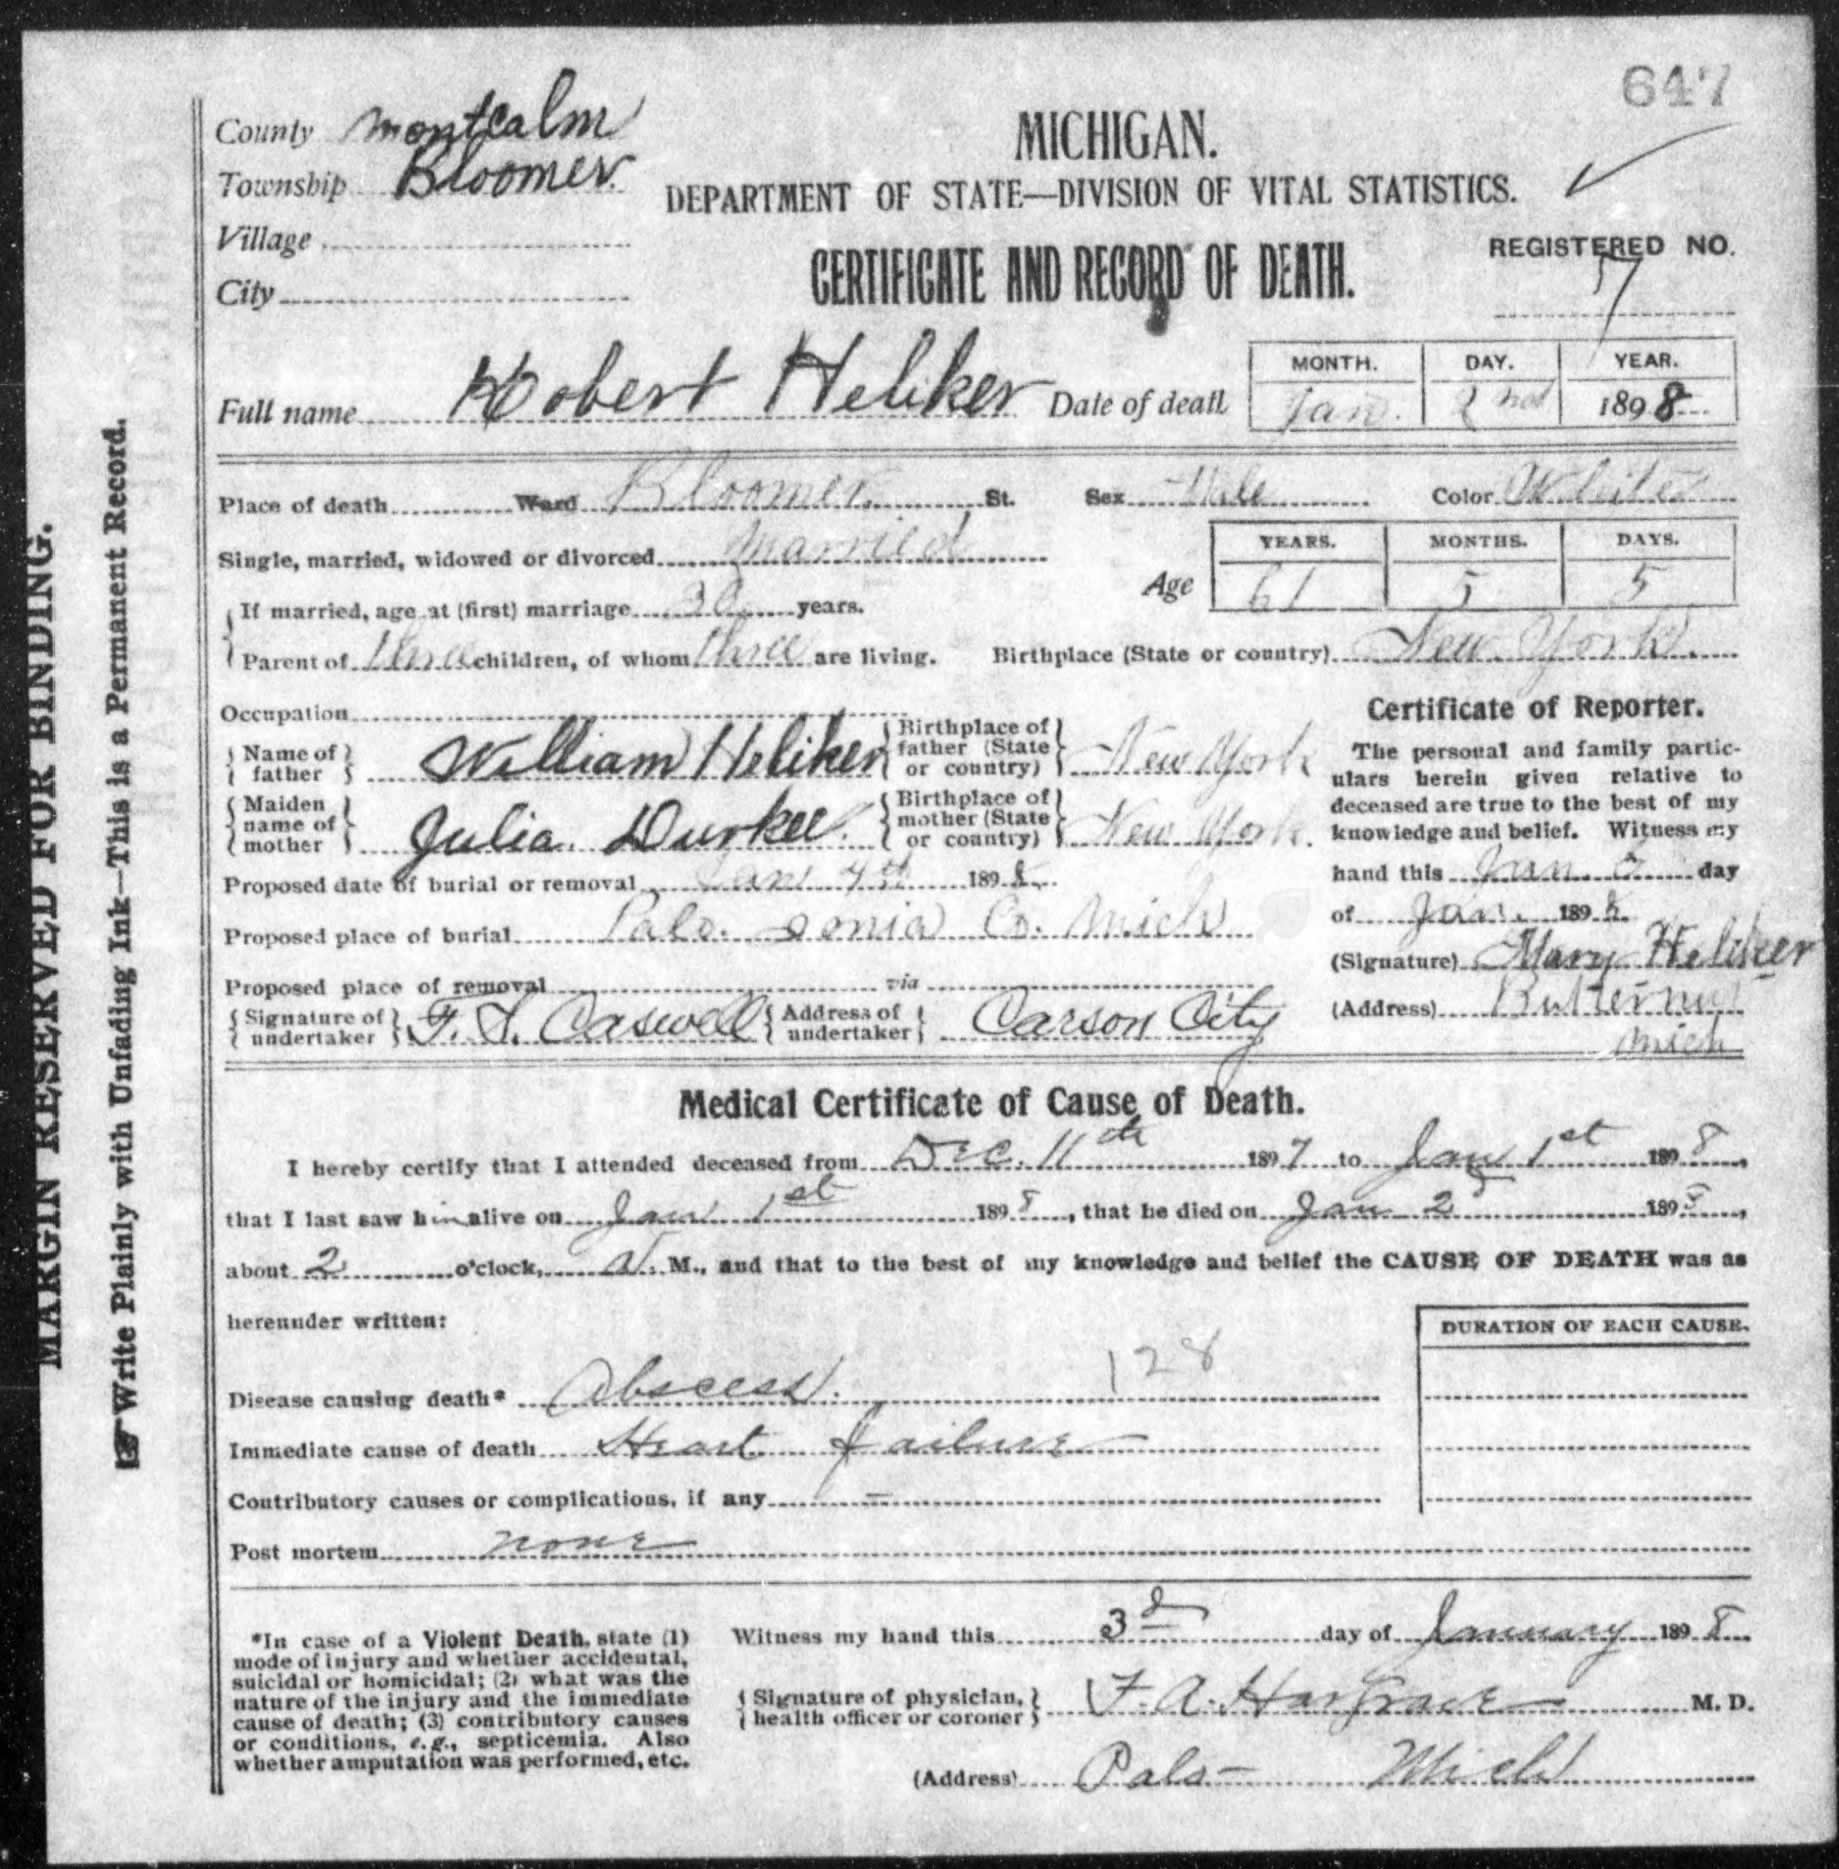 647
County Montcalm
Township Bloomer.
Village
City
MICHIGAN.
DEPARTMENT OF STATE—DIVISION OF VITAL STATISTICS.
CERTIFICATE AND RECORD OF DEATH.
REGISTERED NO.
Full name Robert Heliker Date of death
MONTH. DAY. YEAR.
Jan. 2nd 1898
Place of death Ward Bloomer. St. Sex Male Color White
Single, married, widowed or divorced Married
Age
YEARS. MONTHS. DAYS.
61 5 5
If married, age at (first) marriage 30 years.
Parent of three children, of whom three are living. Birthplace (State or country) New York.
Occupation
Name of father William Heliker Birthplace of father (State or country) New York
Maiden name of mother Julia. Durkee. Birthplace of mother (State or country) New York.
Proposed date of burial or removal Jan 4th 1898
Proposed place of burial Palo. Ionia Co. Mich
Proposed place of removal via
Signature of undertaker F. A. Caswell Address of undertaker Carson City
Certificate of Reporter.
The personal and family partic-
ulars herein given relative to
deceased are true to the best of my
knowledge and belief. Witness my
hand this Jan. day
of Jan. 1898.
(Signature) Mary Heliker
(Address) Butternut
Mich
Medical Certificate of Cause of Death.
I hereby certify that I attended deceased from Dec. 11th 1897 to Jan 1st 1898,
that I last saw him alive on Jan 1st 1898, that he died on Jan 2d 1898,
about 2 o'clock, A. M., and that to the best of my knowledge and belief the CAUSE OF DEATH was as
hereunder written:
DURATION OF EACH CAUSE.
Disease causing death* Abscess. 128
Immediate cause of death Heart failure
Contributory causes or complications, if any —
Post mortem none
*In case of a Violent Death, state (1)
mode of injury and whether accidental,
suicidal or homicidal; (2) what was the
nature of the injury and the immediate
cause of death; (3) contributory causes
or conditions, e.g., septicemia. Also
whether amputation was performed, etc.
Witness my hand this 3d day of January 1898
Signature of physician, health officer or coroner F. A. Hargrave M. D.
(Address) Palo — Mich
MARGIN RESERVED FOR BINDING.
☞Write Plainly with Unfading Ink—This is a Permanent Record.